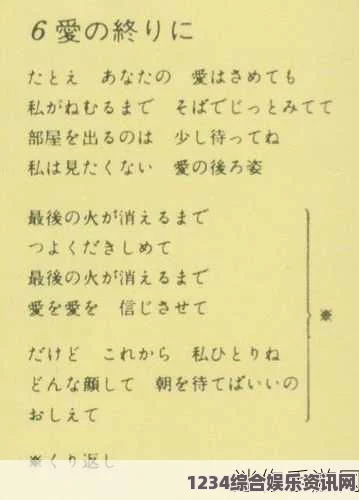 6 愛の終りに
たとえ あなたの 愛はさめても
私がねむるまで そばでじっとみてて
部屋を出るのは 少し待ってね
私は見たくない 愛の後ろ姿
最後の火が消えるまで
つよくだきしめて
最後の火が消えるまで
愛を愛を 信じさせて
※
だけど これから 私ひとりね
どんな顔して 朝を待てばいいの
おしえて
※くり返し
1234综合娱乐资讯网